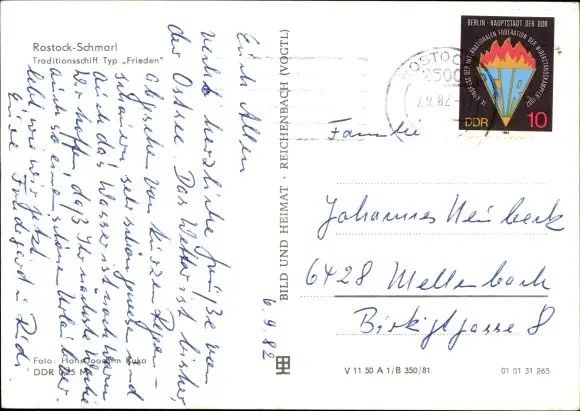 Rostock-Schmarl
Traditionsschiff Typ „Frieden"
Euch Allen
recht herzliche Grüße von
der Ostsee. Das Wetter ist bisher,
abgesehen von kurzen Regen-
schauern sehr schön gewesen und
auch das Wasser ist noch warm
Wir hoffen, daß Ihr nächste Woche
auch so einen schönen Urlaub ver-
lebt wie wir jetzt
Eure Friedegard u. Rudi
6.9.82
Foto: Hansjoachim Kuka
DDR 0,25 M
BILD UND HEIMAT · REICHENBACH (VOGTL)
BERLIN - HAUPTSTADT DER DDR
IX. KONGRESS DER INTERNATIONALEN FÖDERATION DER WIDERSTANDSKÄMPFER 1982
FIR
DDR 10
1982
ROSTOCK
2500
7.9.82
Familie
Johannes Neubeck
6428 Mellenbach
Birkigtgasse 8
V 11 50 A 1/B 350/81
01 01 31 265